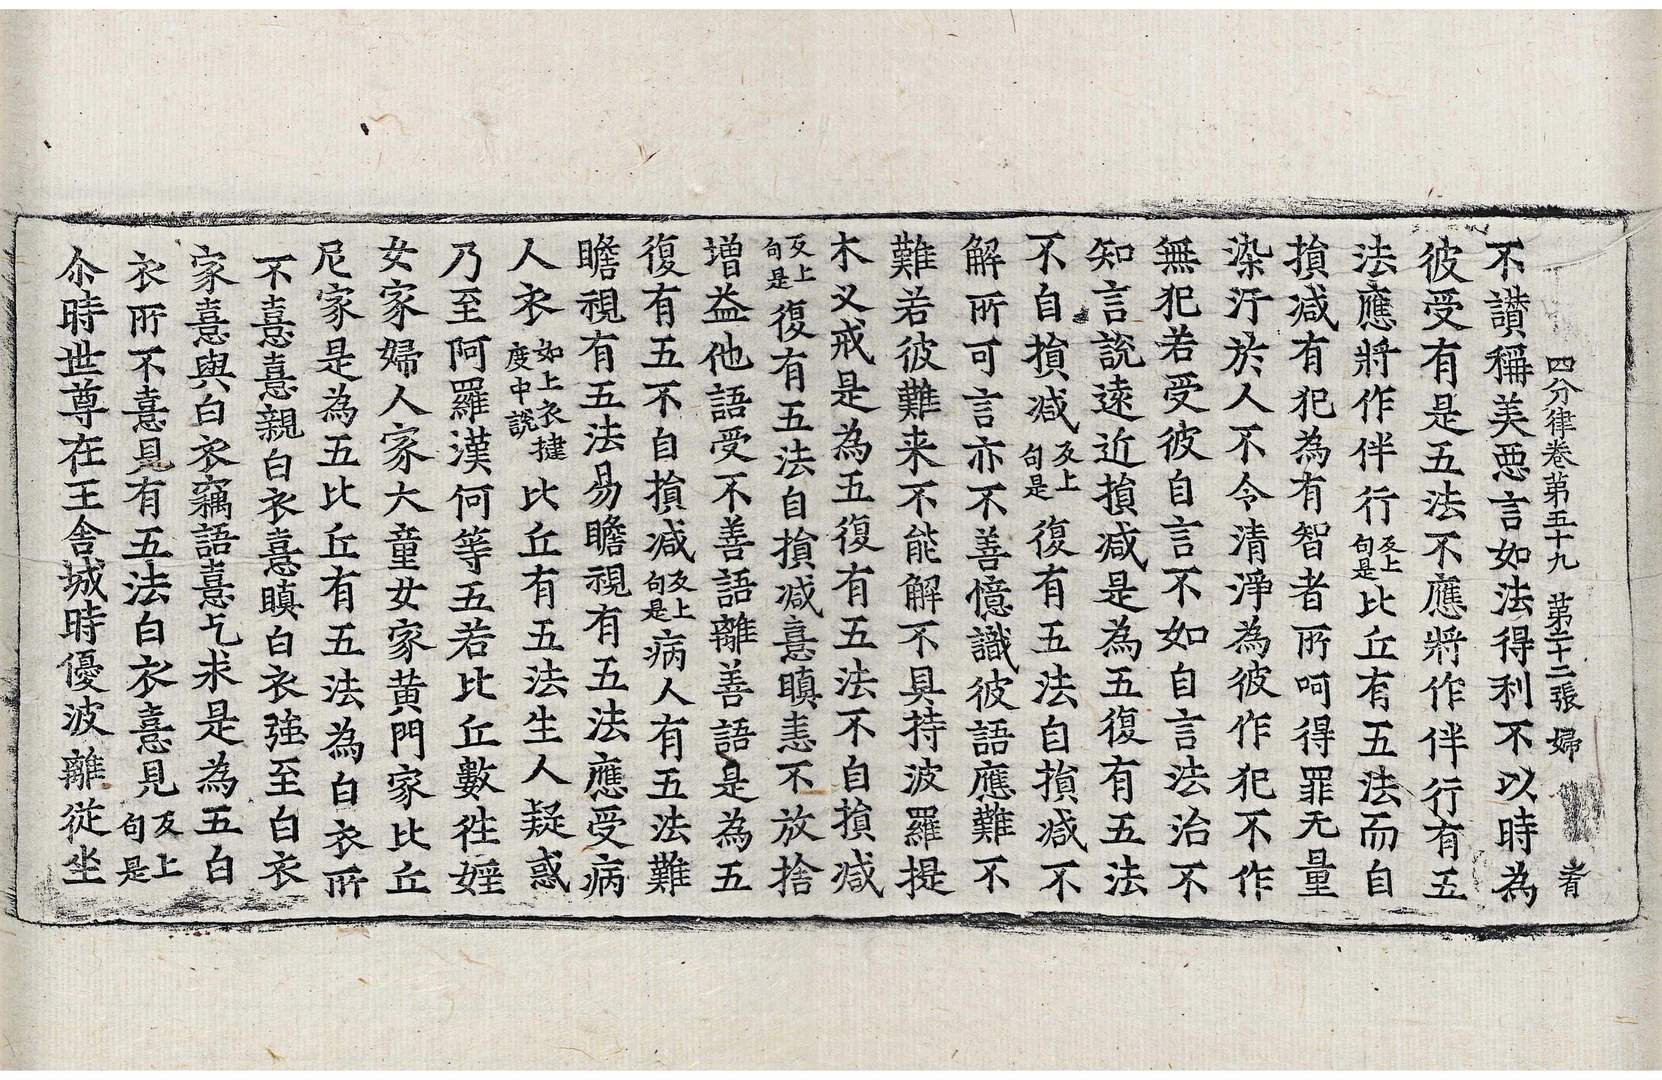 四分律卷第五十九 第二十二張 婦
不讃稱美惡言如法得利不以時為
彼受有是五法不應將作伴行有五
法應將作伴行反上句是比丘有五法而自
損减有犯為有智者所呵得罪无量
染汙於人不令清淨為彼作犯不作
無犯若受彼自言不如自言法治不
知言說遠近損减是為五復有五法
不自損减反上句是復有五法自損减不
解所可言亦不善憶識彼語應難不
難若彼難来不能解不具持波羅提
木义戒是為五復有五法不自損减
反上句是復有五法自損减憙瞋恚不放捨
増益他語受不善語離善語是為五
復有五不自損减反上句是病人有五法難
瞻視有五法易瞻視有五法應受病
人衣如上衣揵度中說比丘有五法生人疑惑
乃至阿羅漢何等五若比丘數徃婬
女家婦人家大童女家黄門家比丘
尼家是為五比丘有五法為白衣所
不憙憙親白衣憙瞋白衣強至白衣
家憙與白衣竊語憙乞求是為五白
衣所不憙見有五法白衣憙見反上句是
尒時世尊在王舍城時優波離從坐